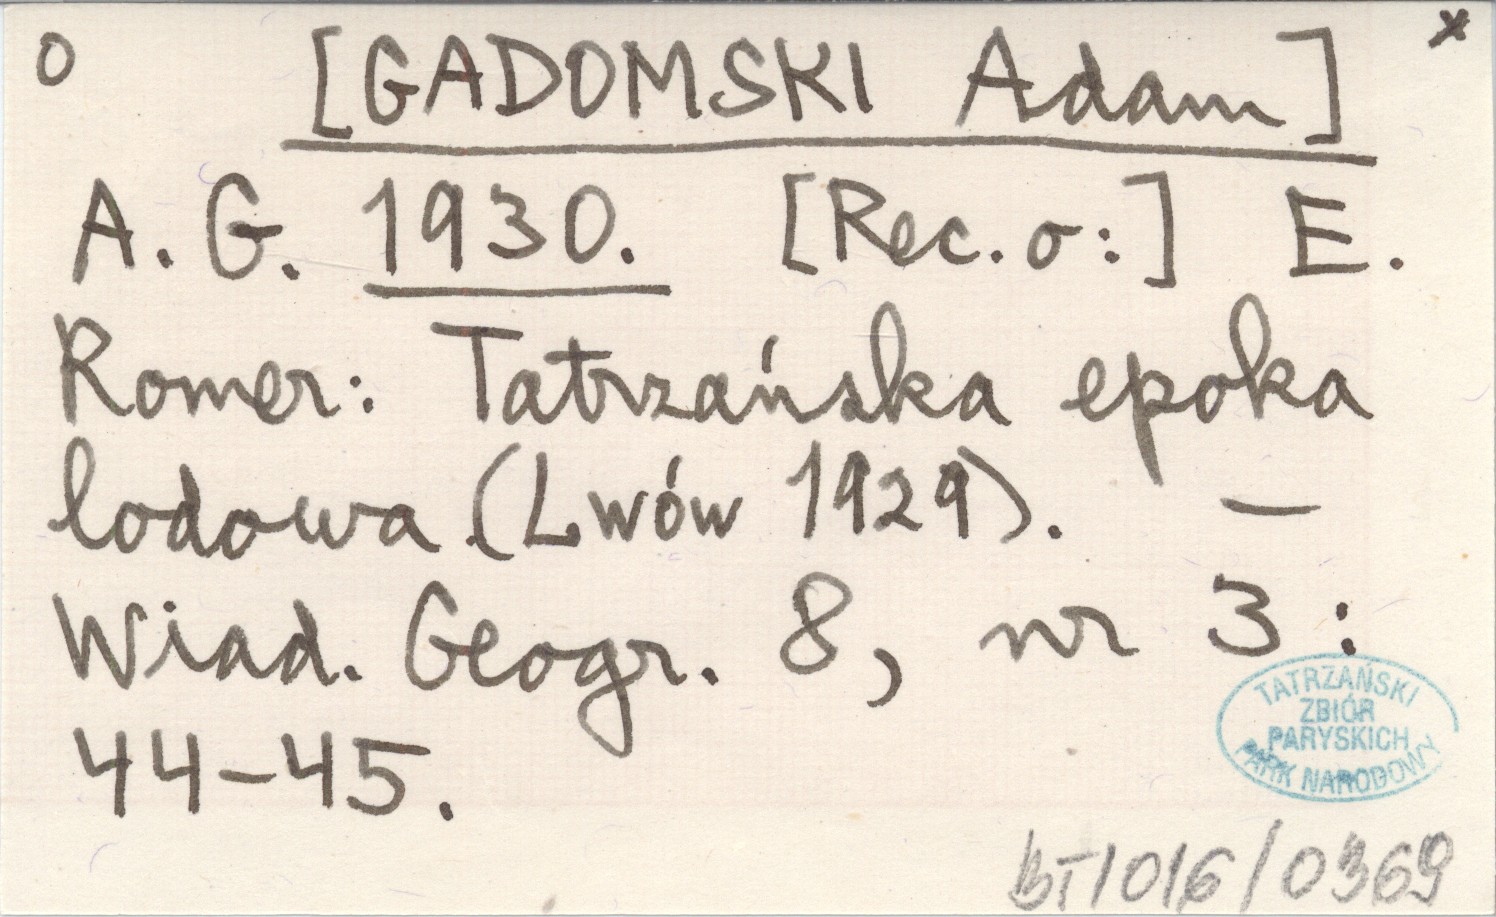 o [GADOMSKI Adam] x
A. G. 1930. [Rec. o:] E.
Romer: Tatrzańska epoka
lodowa (Lwów 1929). —
Wiad. Geogr. 8, nr 3:
44-45.
TATRZAŃSKI
ZBIÓR
PARYSKICH
PARK NARODOWY
BT/016/0369